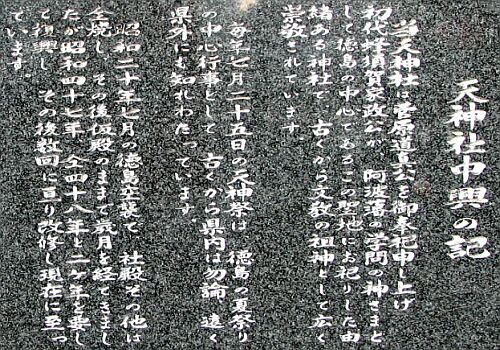 天神社中興の記
当天神社は菅原道真公を御奉祀申し上げ
初代蜂須賀家政公が、阿波藩の学問の神さまと
して徳島の中心であるこの聖地にお祀りした由
緒ある神社で、古くから文教の祖神として広く
崇敬されています。
毎年七月二十五日の天神祭は、徳島の夏祭り
の中心行事として、古くから県内は勿論、遠く
県外にも知れわたっています。
昭和二十年七月の徳島空襲で、社殿その他は
全焼し、その後仮殿のままで歳月を経てきまし
たが昭和四十七年、仝四十八年と二ヶ年を要し
て復興し、その後数回に亘り改修し現在に至っ
ています。